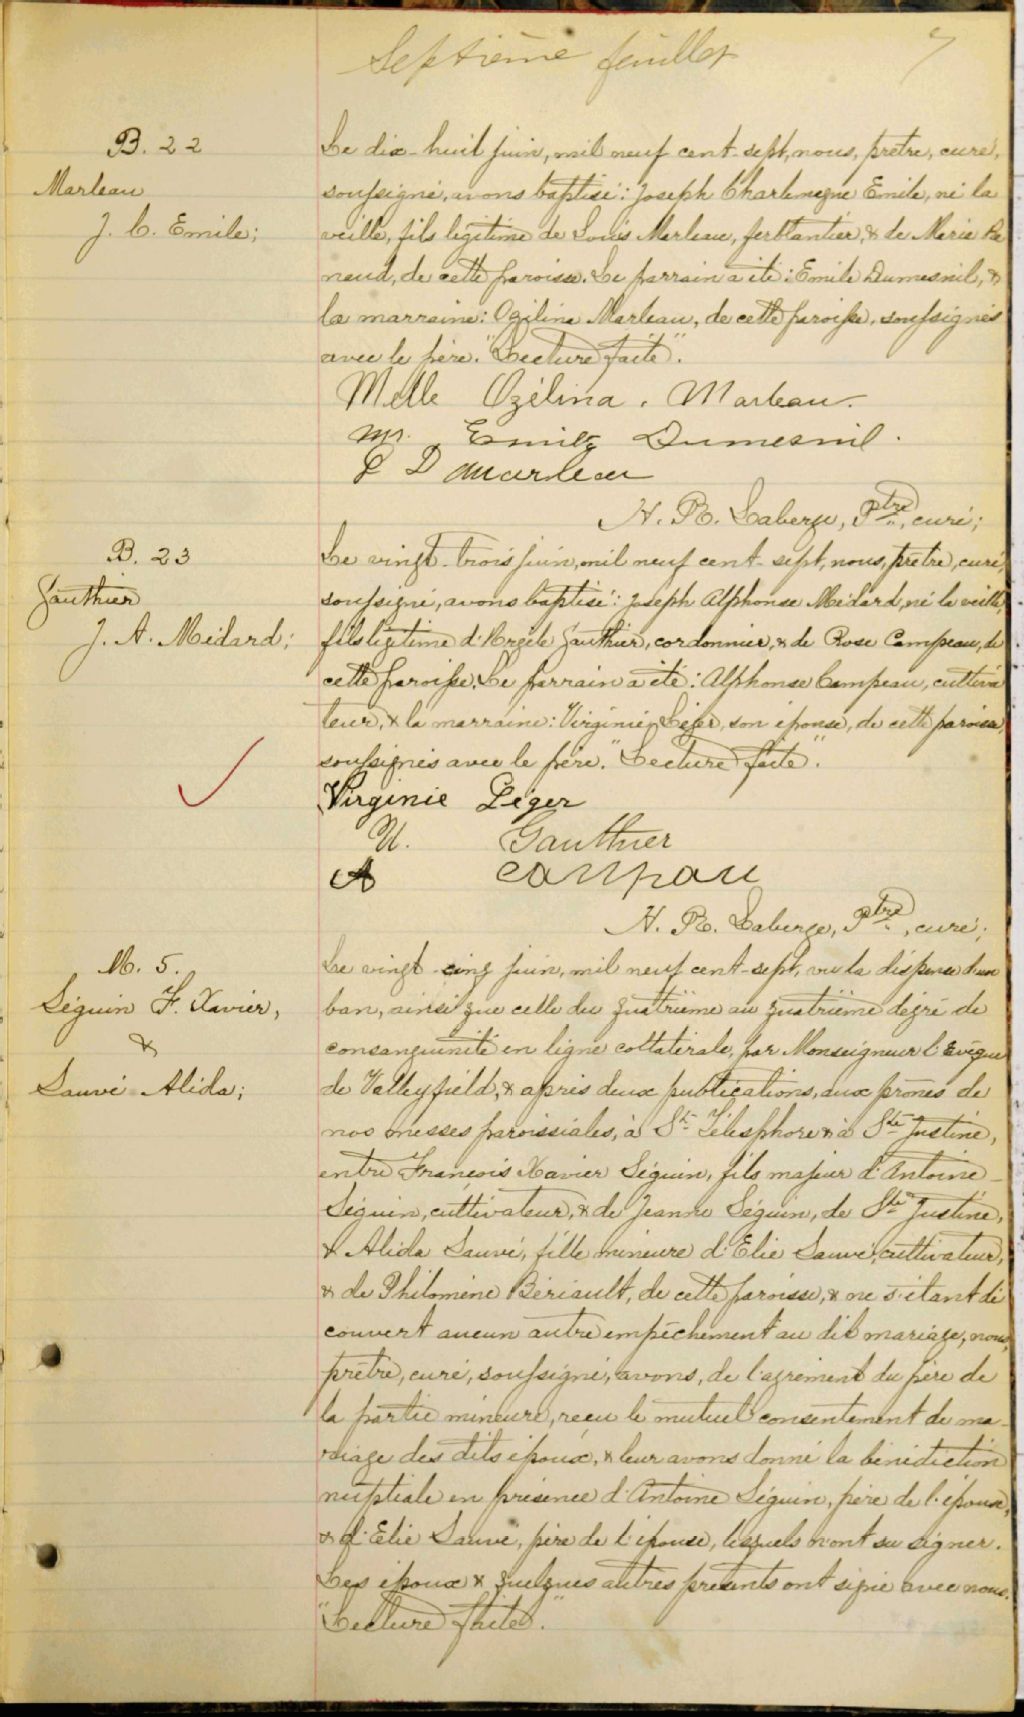 Septième feuillet 7
B. 22
Marleau
J. C. Emile;
Le dix-huit juin, mil neuf cent-sept, nous, prêtre, curé,
soussigné, avons baptisé: Joseph Charlemagne Emile, né la
veille, fils légitime de Louis Marleau, ferblantier, & de Marie Re
naud, de cette paroisse. Le parrain a été: Emile Dumesnil, &
la marraine: Ozélina Marleau, de cette paroisse, soussignés
avec le père. "Lecture faite".
Melle Ozélina. Marleau.
Mr. Emile Dumesnil.
L D Marleau
H. R. Laberge, Ptre, curé;
B. 23
Gauthier
J. A. Médard;
Le vingt-trois juin, mil neuf cent-sept, nous, prêtre, curé,
soussigné, avons baptisé: Joseph Alphonse Médard, né la veille,
fils légitime d'Urgèle Gauthier, cordonnier, & de Rose Campeau, de
cette paroisse. Le parrain a été: Alphonse Campeau, cultiva
teur, & la marraine: Virginie Léger, son épouse, de cette paroisse,
soussignés avec le père. "Lecture faite".
Virginie Léger
U. Gauthier
A campau
H. R. Laberge, Ptre, curé;
M. 5.
Séguin F. Xavier,
&
Sauvé Alida;
Le vingt-cinq juin, mil neuf cent-sept, vu la dispense d'un
ban, ainsi que celle du quatrième au quatrième dégré de
consanguinité en ligne collatérale, par Monseigneur l'Evêque
de Valleyfield, & après deux publications, aux prônes de
nos messes paroissiales, à St Télesphore & à Ste Justine,
entre François Xavier Séguin, fils majeur d'Antoine
Séguin, cultivateur, & de Jeanne Séguin, de Ste Justine,
& Alida Sauvé, fille mineure d'Elie Sauvé, cultivateur,
& de Philomène Bériault, de cette paroisse, & ne s'étant dé
couvert aucun autre empêchement au dit mariage, nous,
prêtre, curé, soussigné, avons, de l'agrément du père de
la partie mineure, reçu le mutuel consentement de ma-
riage des dits époux, & leur avons donné la bénédiction
nuptiale en présence d'Antoine Séguin, père de l'époux,
& d'Elie Sauvé, père de l'épouse, lesquels n'ont su signer.
Les époux & quelques autres présents ont signé avec nous.
"Lecture faite".